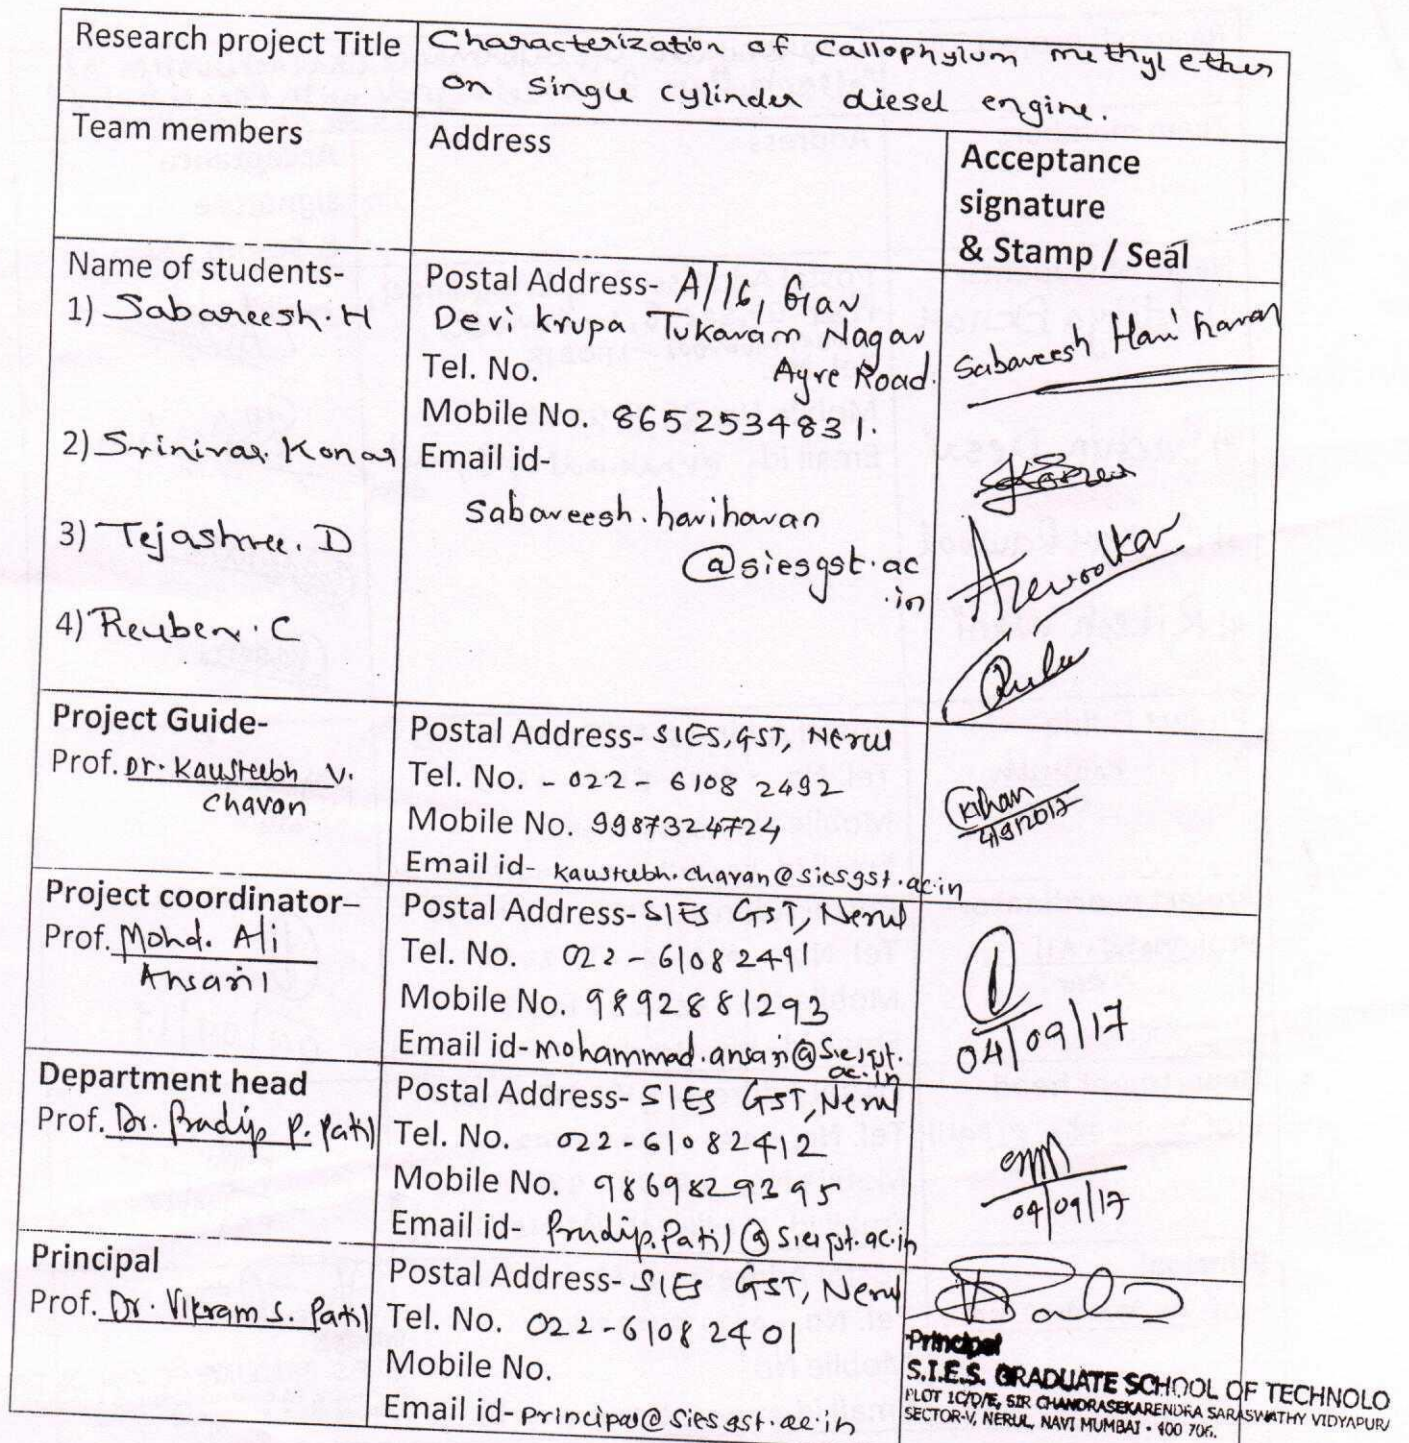 Research project Title
Characterization of Callophylum methyl ether
on single cylinder diesel engine.
Team members
Address
Acceptance
signature
& Stamp / Seal
Name of students-
1) Sabareesh.H
2) Srinivas. Konar
3) Tejashree. D
4) Reuben. C
Postal Address- A/16, Gav
Devi Krupa Tukaram Nagar
Ayre Road.
Tel. No.
Mobile No. 8652534831.
Email id-
Sabareesh.hariharan
@siesgst.ac
.in
Sabareesh Hariharan
Project Guide-
Prof. Dr. Kausteubh V.
Chavan
Postal Address- SIES, GST, Nerul
Tel. No. - 022 - 6108 2492
Mobile No. 9987324724
Email id- kausteubh.chavan@siesgst.ac.in
4/9/2017
Project coordinator–
Prof. Mohd. Ali
Ansari
Postal Address- SIES GST, Nerul
Tel. No. 022-61082491
Mobile No. 9892881293
Email id- mohammad.ansari@siesgst.
ac.in
04/09/17
Department head
Prof. Dr. Pradip P. Patil
Postal Address- SIES GST, Nerul
Tel. No. 022-61082412
Mobile No. 9869829395
Email id- Pradip.Patil@siesgst.ac.in
04/09/17
Principal
Prof. Dr. Vikram S. Patil
Postal Address- SIES GST, Nerul
Tel. No. 022-61082401
Mobile No.
Email id- principal@siesgst.ac.in
Principal
S.I.E.S. GRADUATE SCHOOL OF TECHNOLO
PLOT 1C/D/E, SIR CHANDRASEKARENDRA SARASWATHY VIDYAPURA
SECTOR-V, NERUL, NAVI MUMBAI - 400 706.